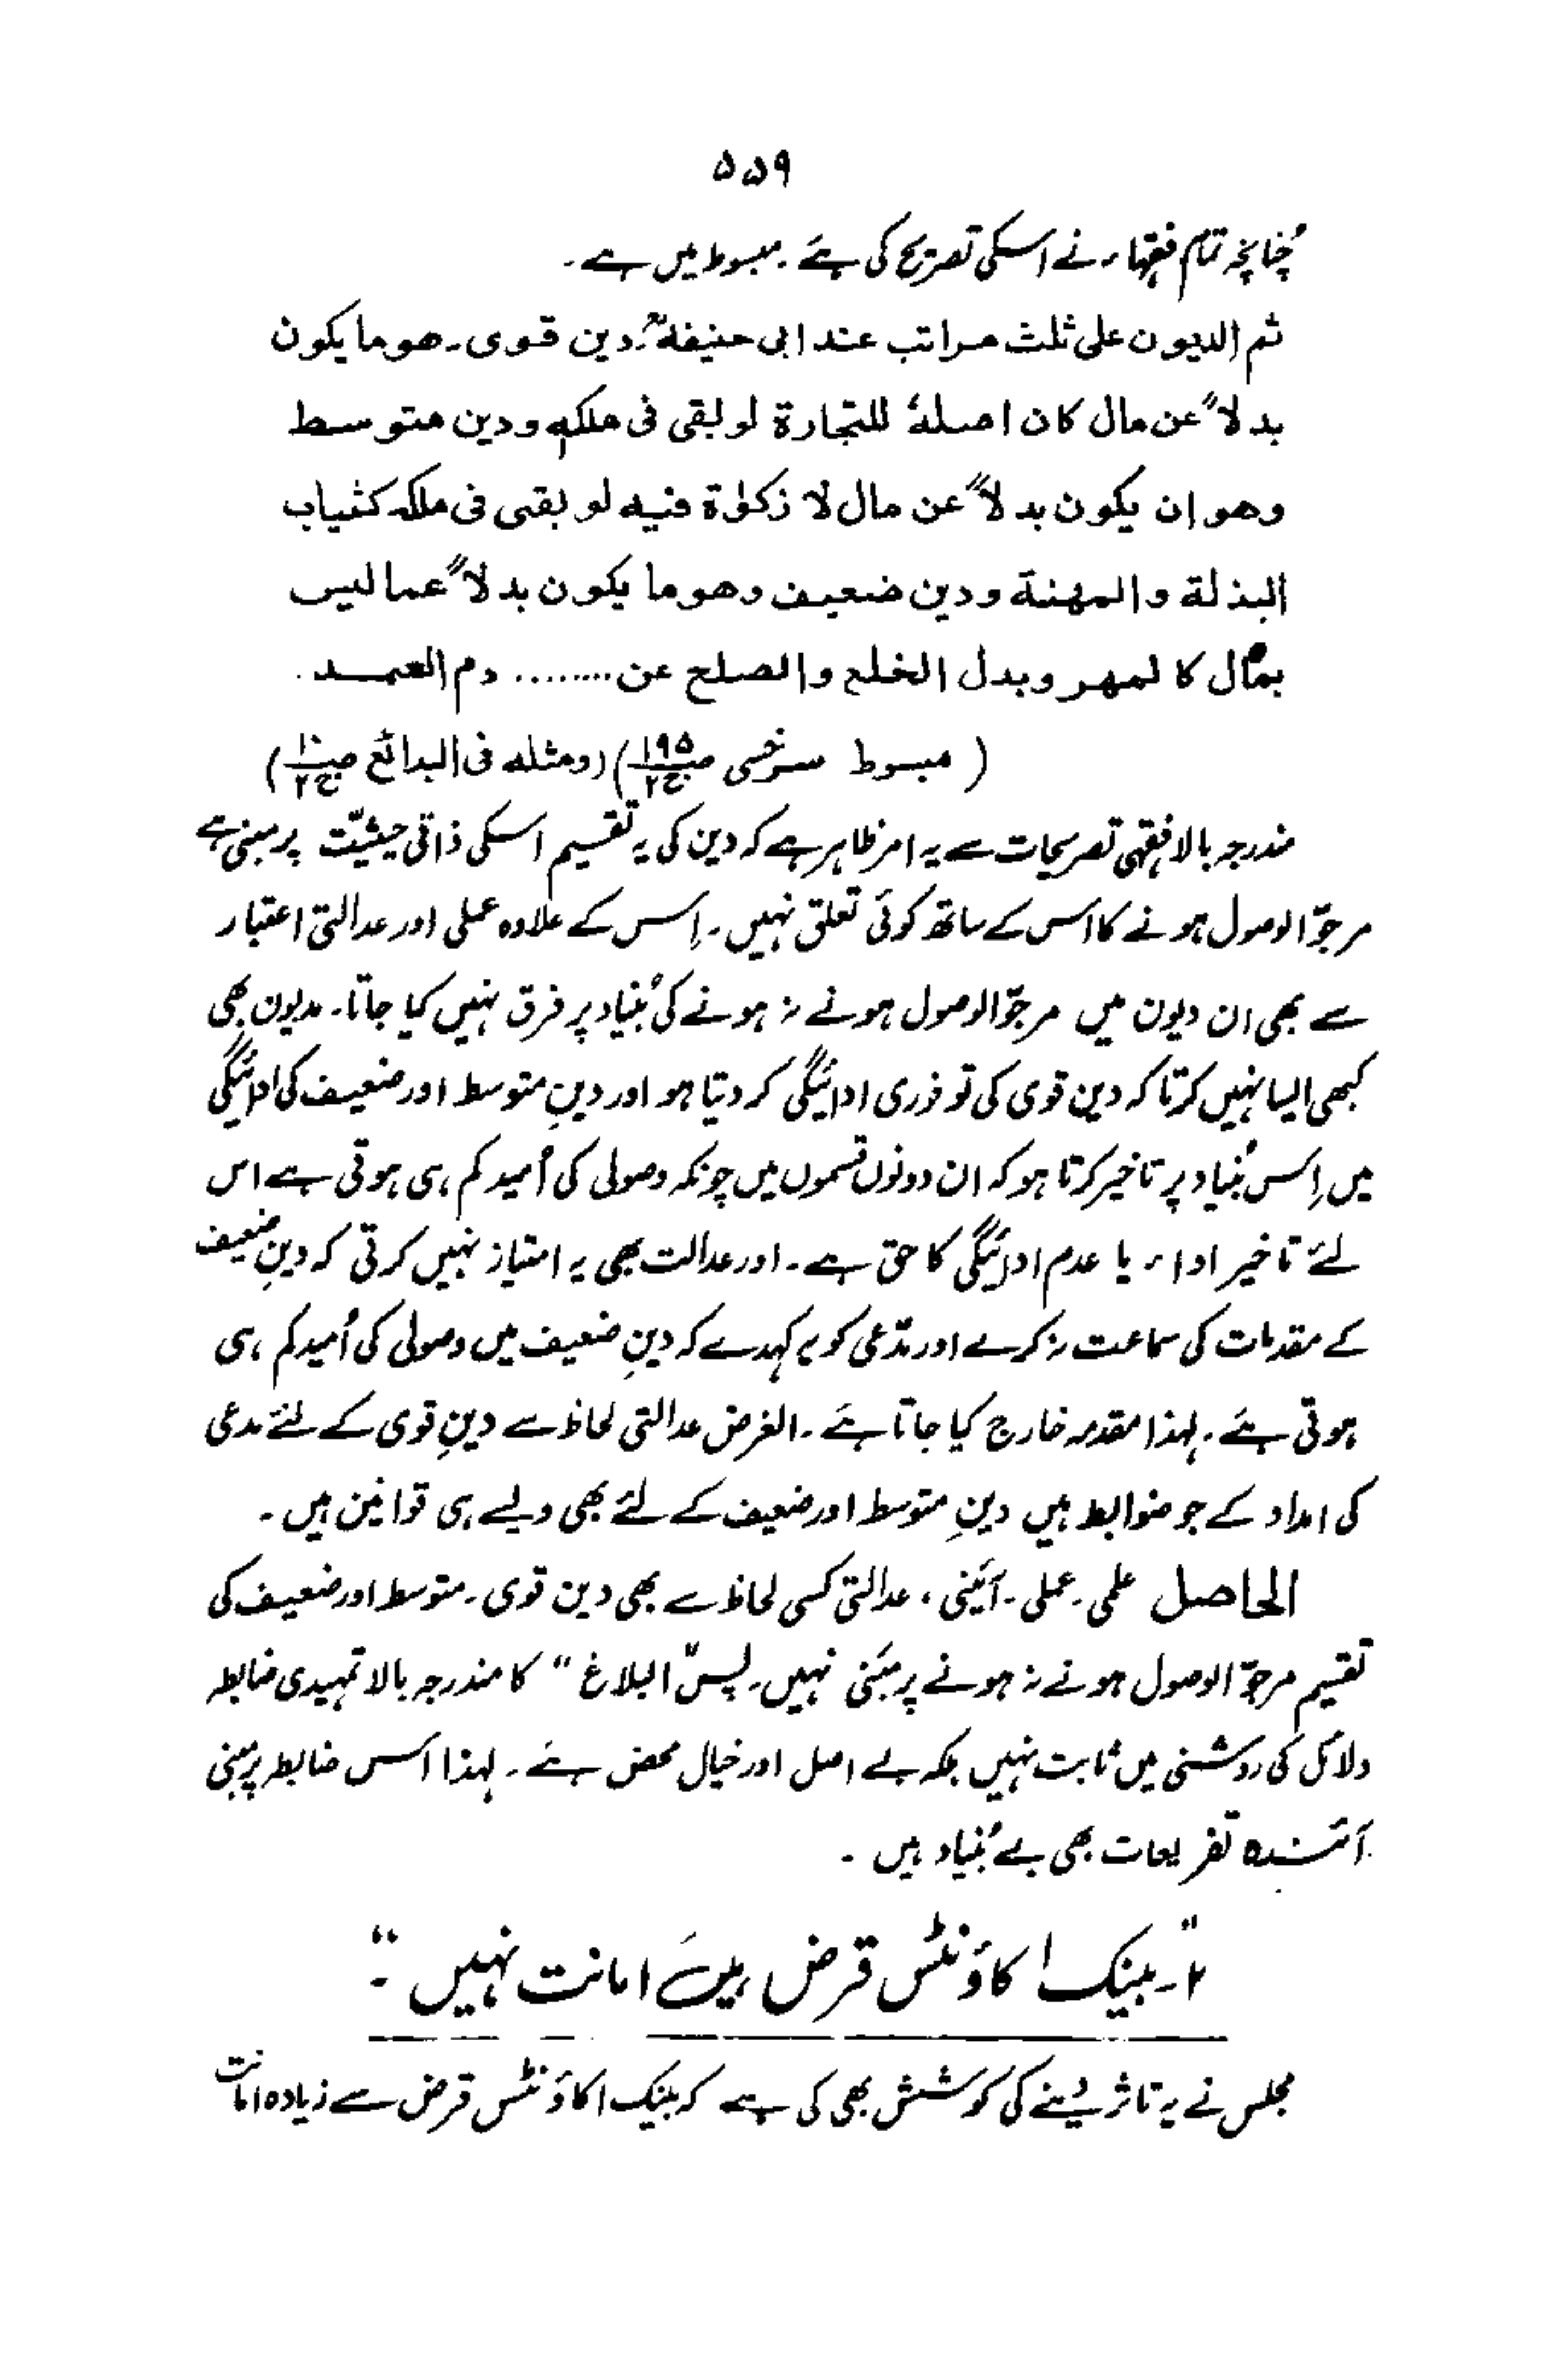 ۵۵۹
چُنانچہ تمام فقہاء نے اسکی تصریح کی ہے۔ مبسوط میں ہے۔
ثم الدیون علی ثلث مراتب عند ابی حنیفۃؒ۔ دین قوی۔ ھو ما یکون
بدلاً عن مال کان اصلہٗ للتجارۃ لو بقی فی ملکہٖ ودین متوسط
وھو ان یکون بدلاً عن مال لا زکوٰۃ فیہ لو بقی فی ملکہ کثیاب
البذلۃ والمھنۃ ودین ضعیف وھو ما یکون بدلاً عما لیس
بمال کالمھر وبدل الخلع والصلح عن ........ دم العمد.
( مبسوط سرخسی ص۱۹۵ ج۲) (ومثلہ فی البدائع ص۱۰ ج۲)
مندرجہ بالا فقہی تصریحات سے یہ امر ظاہر ہے کہ دین کی یہ تقسیم اسکی ذاتی حیثیّت پر مبنی ہے
مرجوّ الوصول ہونے کا اس کے ساتھ کوئی تعلق نہیں۔ اِس کے علاوہ عملی اور عدالتی اعتبار
سے بھی ان دیون میں مرجوّ الوصول ہونے نہ ہونے کی بُنیاد پر فرق نہیں کیا جاتا۔ مدیون بھی
کبھی ایسا نہیں کرتا کہ دین قوی کی تو فوری ادائیگی کر دیتا ہو اور دینِ متوسط اور ضعیف کی ادائیگی
میں اِس بُنیاد پر تاخیر کرتا ہو کہ ان دونوں قسموں میں چونکہ وصولی کی اُمید کم ہی ہوتی ہے اس
لئے تاخیر اداء یا عدم ادائیگی کا حق ہے۔ اور عدالت بھی یہ امتیاز نہیں کرتی کہ دینِ ضعیف
کے مقدمات کی سماعت نہ کرے اور مدّعی کو یہ کہدے کہ دینِ ضعیف میں وصولی کی اُمید کم ہی
ہوتی ہے۔ لہذا مقدمہ خارج کیا جاتا ہے۔ الغرض عدالتی لحاظ سے دینِ قوی کے لئے مدعی
کی امداد کے جو ضوابط ہیں دینِ متوسط اور ضعیف کے لئے بھی ویسے ہی قوانین ہیں۔
الحاصل علمی۔ عملی۔ آئینی، عدالتی کسی لحاظ سے بھی دین قوی۔ متوسط اور ضعیف کی
تقسیم مرجوّ الوصول ہونے نہ ہونے پر مبنی نہیں۔ پس "البلاغ" کا مندرجہ بالا تمہیدی ضابطہ
دلائل کی روشنی میں ثابت نہیں بلکہ بے اصل اور خیال محض ہے۔ لہذا اس ضابطہ پر مبنی
آئندہ تفریعات بھی بے بُنیاد ہیں۔
"۲۔ بینک اکاؤنٹس قرض ہیں امانت نہیں۔"
مجلس نے یہ تاثر دینے کی کوشش بھی کی ہے کہ بینک اکاؤنٹس قرض سے زیادہ امانت